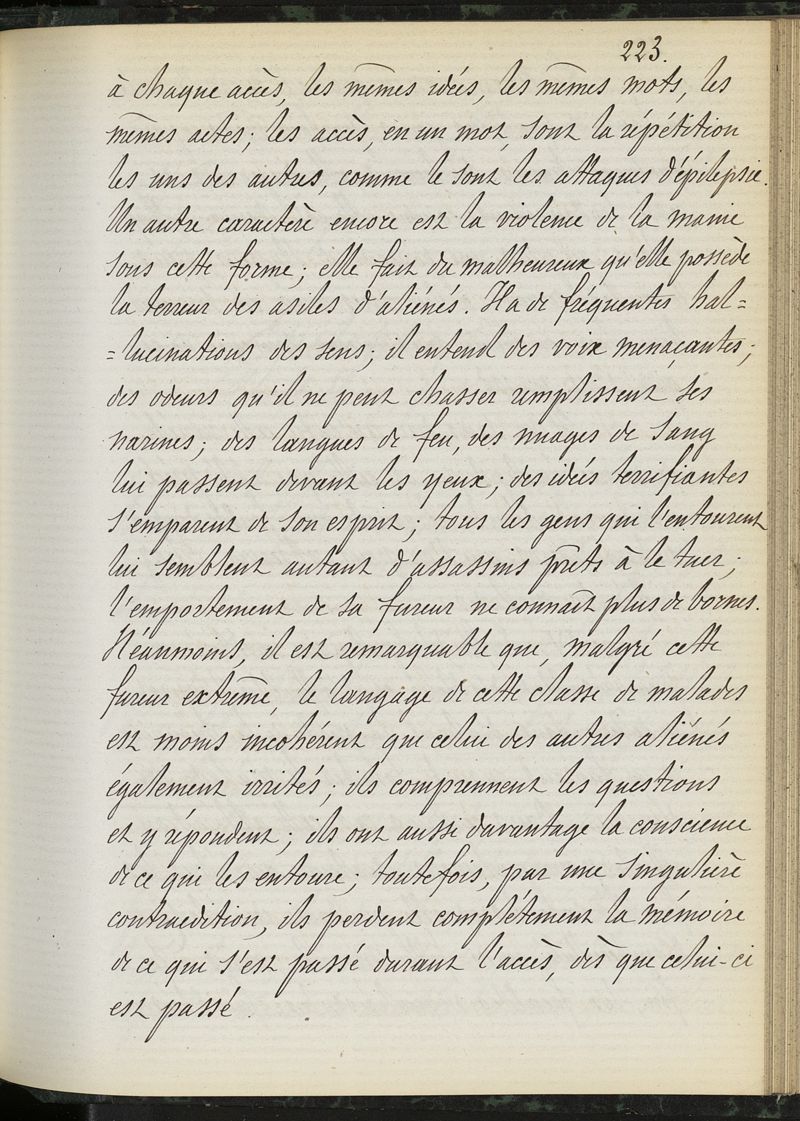 223.
à chaque accès, les mêmes idées, les mêmes mots, les
mêmes actes; les accès, en un mot, sont la répétition
les uns des autres, comme le sont les attaques d'épilepsie.
Un autre caractère encore est la violence de la manie
sous cette forme; elle fait du malheureux qu'elle possède
la terreur des asiles d'aliénés. Il a de fréquentes hal=
=lucinations des sens; il entend des voix menaçantes;
des odeurs qu'il ne peut chasser remplissent ses
narines; des langues de feu, des nuages de sang
lui passent devant les yeux; des idées terrifiantes
s'emparent de son esprit; tous les gens qui l'entourent
lui semblent autant d'assassins prêts à le tuer;
l'emportement de sa fureur ne connaît plus de bornes.
Néanmoins, il est remarquable que, malgré cette
fureur extrême, le langage de cette classe de malades
est moins incohérent que celui des autres aliénés
également irrités; ils comprennent les questions
et y répondent; ils ont aussi davantage la conscience
de ce qui les entoure; toutefois, par une singulière
contraedition, ils perdent complétement la mémoire
de ce qui s'est passé durant l'accès, dès que celui-ci
est passé.